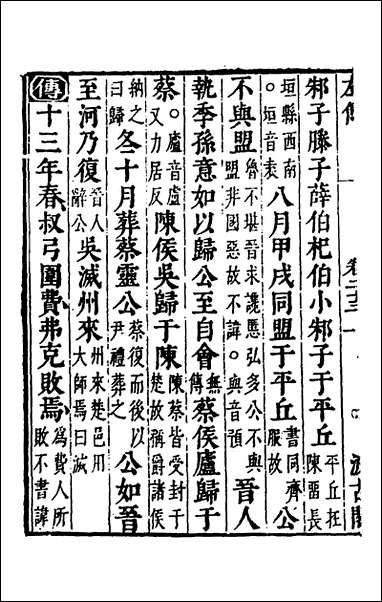 邾子滕子薛伯杞伯小邾子于平丘平丘在陳留長
垣縣西南。垣音袁八月甲戌同盟于平丘書同齊服故公
不與盟魯不堪晉求讒慝弘多公不與盟非國惡故不諱。與音預晉人
執季孫意如以歸公至自會無傳蔡侯廬歸于
蔡。廬音盧又力居反陳侯吳歸于陳陳蔡皆受封于楚故稱爵諸侯
納之曰歸冬十月葬蔡靈公蔡復而後以君禮葬之公如晉
至河乃復晉人辭公吳滅州來州來楚邑用大師焉曰滅
傳十三年春叔弓圍費弗克敗焉為費人所敗不書諱